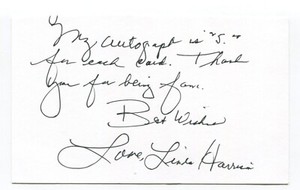 My autograph is "5."
for each card. Thank
you for being fan.
Best Wishes
Love, Linda Harris